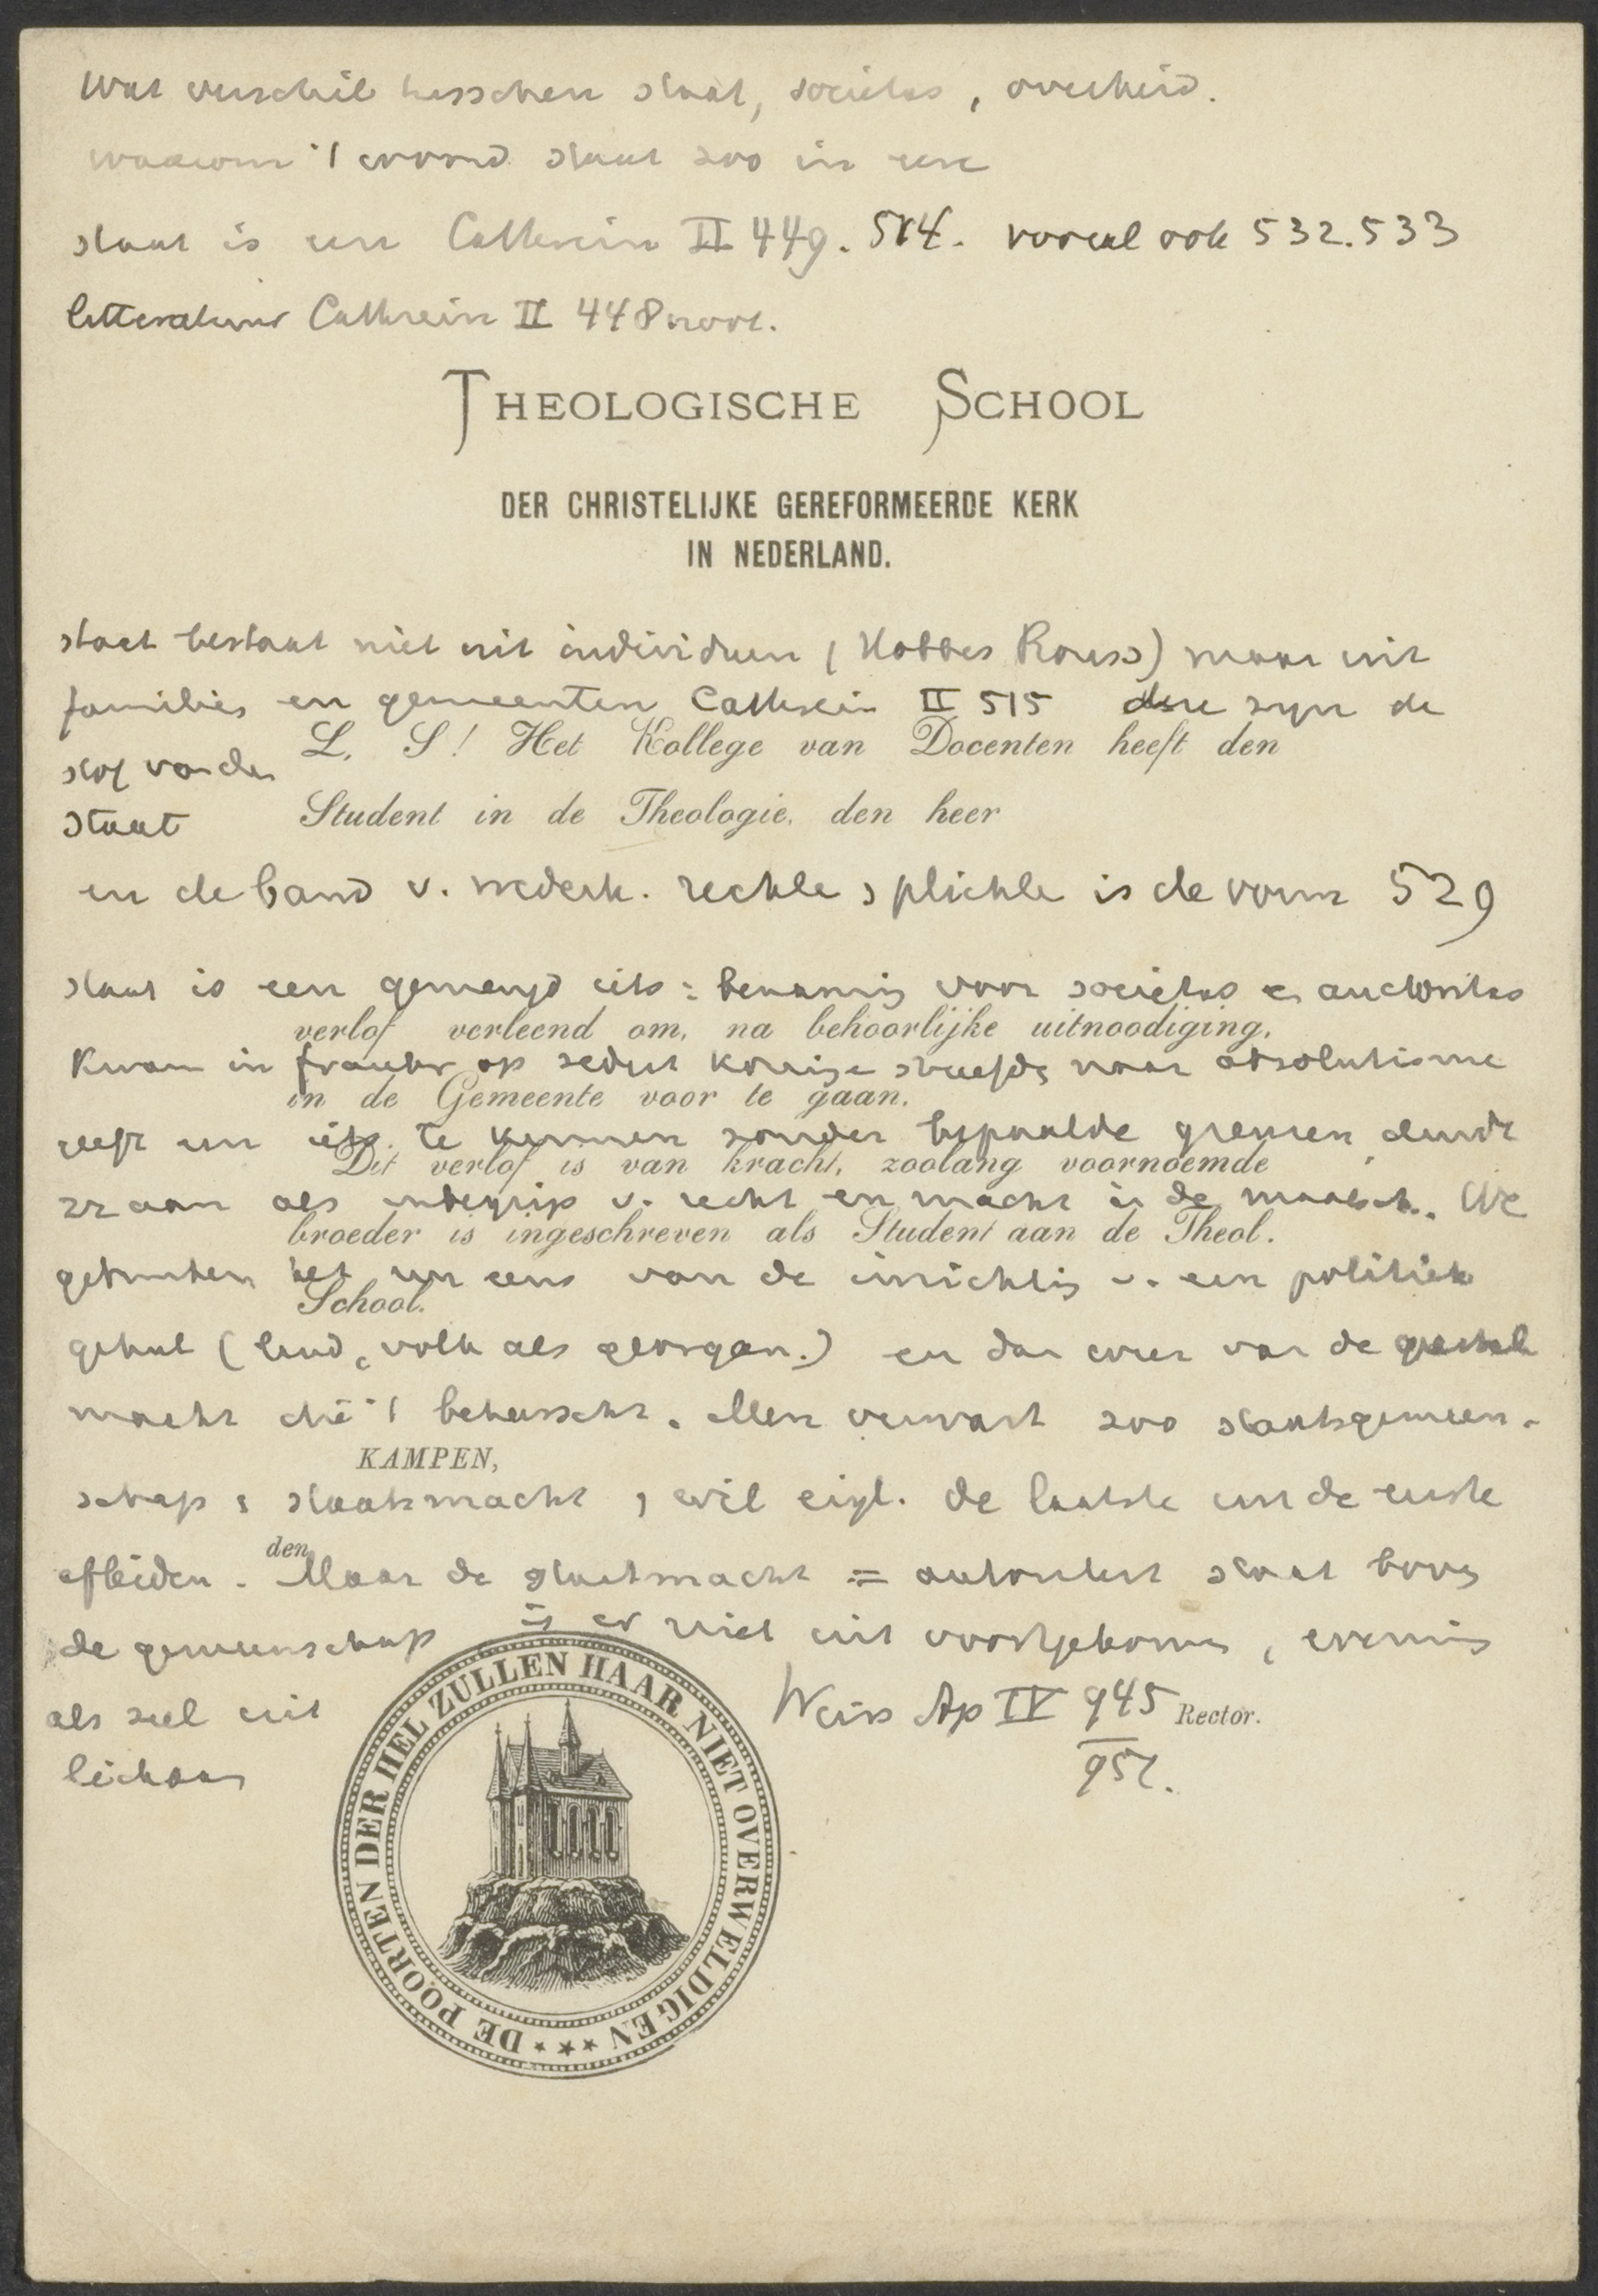 Wat verschil tusschen staat, societas, overheid.
waarom 't woord staat zoo in eere
staat is een Cathrein II 449. 514. vooral ook 532.533
litteratuur Cathrein II 448 noot.
THEOLOGISCHE SCHOOL
DER CHRISTELIJKE GEREFORMEERDE KERK
IN NEDERLAND.
staat bestaat niet uit individuen (Hobbes Rouss) maar uit
families en gemeenten Cathrein II 515 deze zijn de
L. S! Het Kollege van Docenten heeft den
stof van den
Student in de Theologie, den heer
staat
en de band v. wederk. rechte plichte is de vorm 529
staat is een gemengd iets: benaming voor societas en auctoritas
verlof verleend om, na behoorlijke uitnoodiging,
Kwam in op sedert naar absolutisme
in de Gemeente voor te gaan.
geeft een iets te kennen zonder bepaalde grenzen, duidt
Dit verlof is van kracht, zoolang voornoemde
aan als v. recht en macht in de maatsch. We
broeder is ingeschreven als Student aan de Theol.
gebruiken het nu eens van de inrichting v. een politiek
School.
geheel (land, volk als georgan.) en dan weer van de
macht die 't beheerscht. Men verwart zoo staatsgemeen-
KAMPEN,
schap staatsmacht, wil eigl. de laatste uit de eerste
den
afleiden. Maar de staatsmacht = autoriteit staat boven
de gemeenschap is er niet uit voortgekomen, evenmin
als ziel uit
Weiss Ap IV 945
Rector.
lichaam
957.
DE POORTEN DER HEL ZULLEN HAAR NIET OVERWELDIGEN